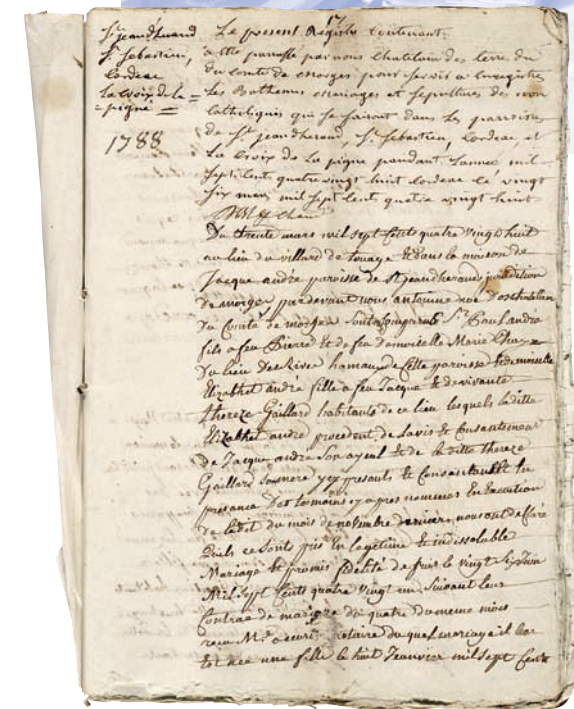 St jeandherand
St Sebastien,
Cordeac
La Croix de la
pigne
1788
Le present Registre Contenant
a été par nous Chatelain des terres du
du Comté de morges pour servir a Enregistrer
Les Bathemes mariages et sepultures des non
Catholiques qui se fairont dans les parroisses
de St jeandherand, St Sebastien, Cordeac, et
La Croix de La pigne pandant Lannee mil
sept Cent quatre vingt huit Cordeac Le vingt
six mars mil sept Cent quatre vingt huit
Du trente mars mil sept Cents quatre vingt huit
au lieu du villard de touage & dans la maison de
Jacque andré paroisse de St jeandherand juridition
de morges pardevant nous antoinne
du Comté de morges Sont Comparus Sr Paul andré
fils a feu Pierre & de feu damoizelle Marie
du lieu Des Rives hamau de Cette paroisse & demoiselle
Elizabhet andré fille a feu Jacque & de vivante
thereze Gaillard habitants de ce lieu lesquels laditte
Elizabhet andré procedent de lavis & Consentement
de Jacque andré Son ayeul & de laditte thereze
Gaillard Sa mere y presants & Consentants & En
presance Des temoins cy apres nommes En Execution
de ledit du mois de novembre dernier, nous ont declaré
quils ce Sonts pris En legitime & indissoluble
Mariage & promis fidelité depuis le vingt Six Juin
Mil Sept Cents quatre vingt un Suivant leur
Contrac de mariage du quatre du meme mois
recu Me notaire duquel mariage il
est née une fille le huit Janvier mil sept Cents